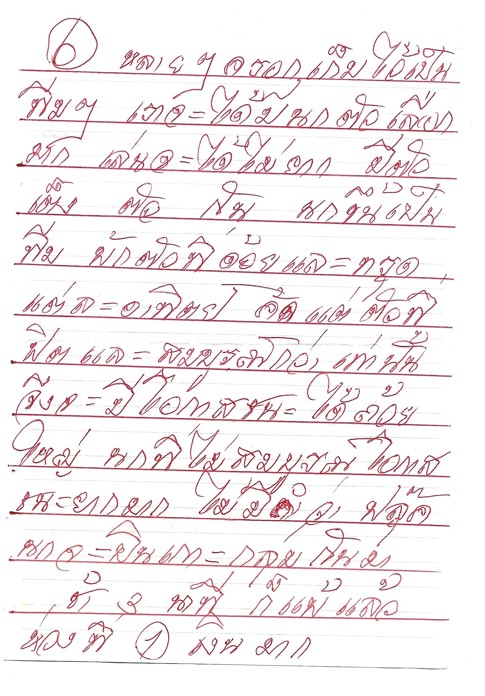 ⑥ หลาย ๆ กรอกเก็บไว้เป็น
ทีมๆ เราจะได้มีนกตัวเลือก
มาก เล่นจะได้ไม่ยาก มีตัว
เต็ง ตัว นกขึ้นเป็น
ทีม พักตัวที่ด้อยและทรุด
แต่ละอาทิตย์ จัดแต่ตัวที่
ฟิตและสมบูรณ์กว่าเท่านั้น
จึงจะมีโอกาสชนะได้ด้วย
ใหม่ นกที่ไม่สมบูรณ์ โอกาส
ชนะยากมาก ไม่มีคำว่า ฟลุ๊ค
นกจะบินเกาะกลุ่มกันมา
ช้า 3 นาที ก็แพ้แล้ว
ที่ ① มาก